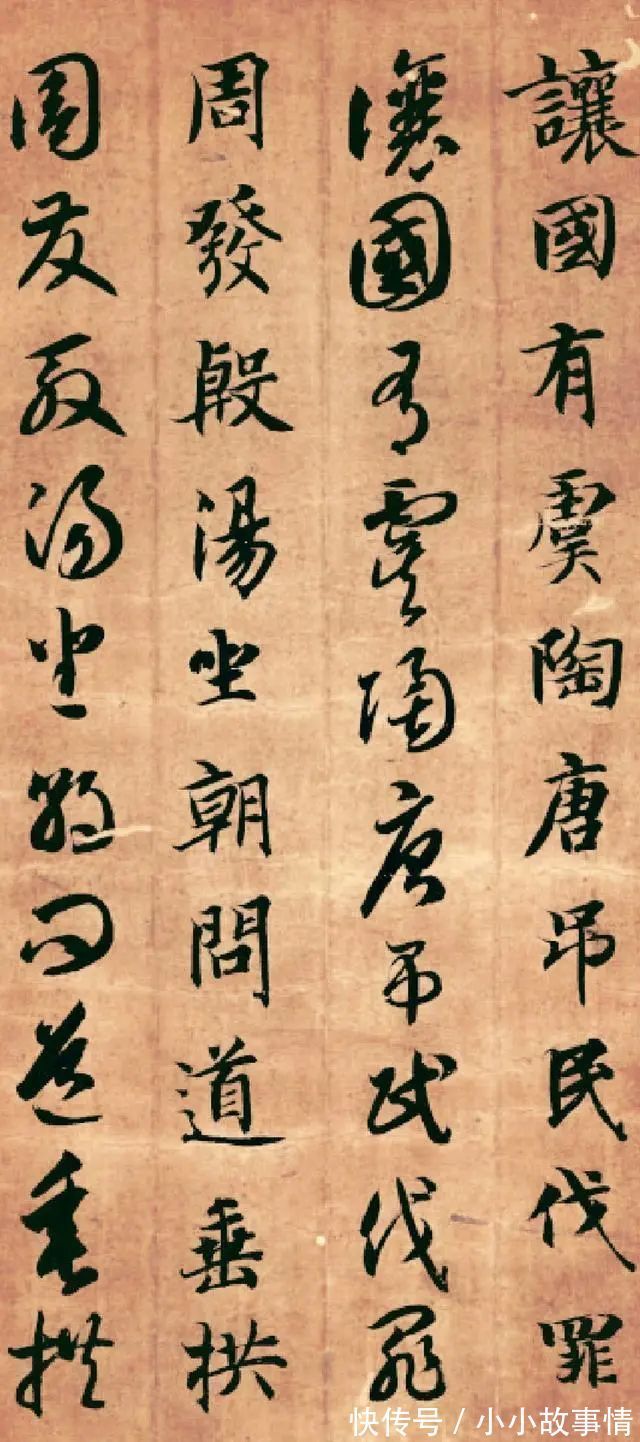 讓國有虞陶唐吊民伐罪
讓國有虞陶唐弔民伐罪
周發殷湯坐朝問道垂拱
周發殷湯坐朝問道垂拱
快传号/小小故事情